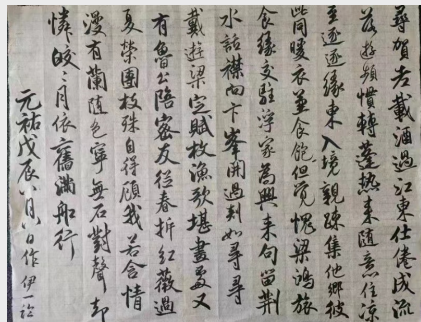 尋賀老載酒過江東仕倦成流
茲遊頻慣轉蓬熱来随意住凉
至逐逐緣東入境親疎集他鄉彼
此同暖衣並食飽但覺愧梁鴻旅
食緣交駐浮家為興来句留荆
水話襟向卞峯開過剡如尋
戴遊梁定賦枚漁歌堪畫處又
有魯公陪密友從春拆紅薇過
夏榮團枝殊自得顧我若含情
漫有蘭随色寧無石對聲却
憐皎々月依舊滿船行
元祐戊辰八月八日作 伊一